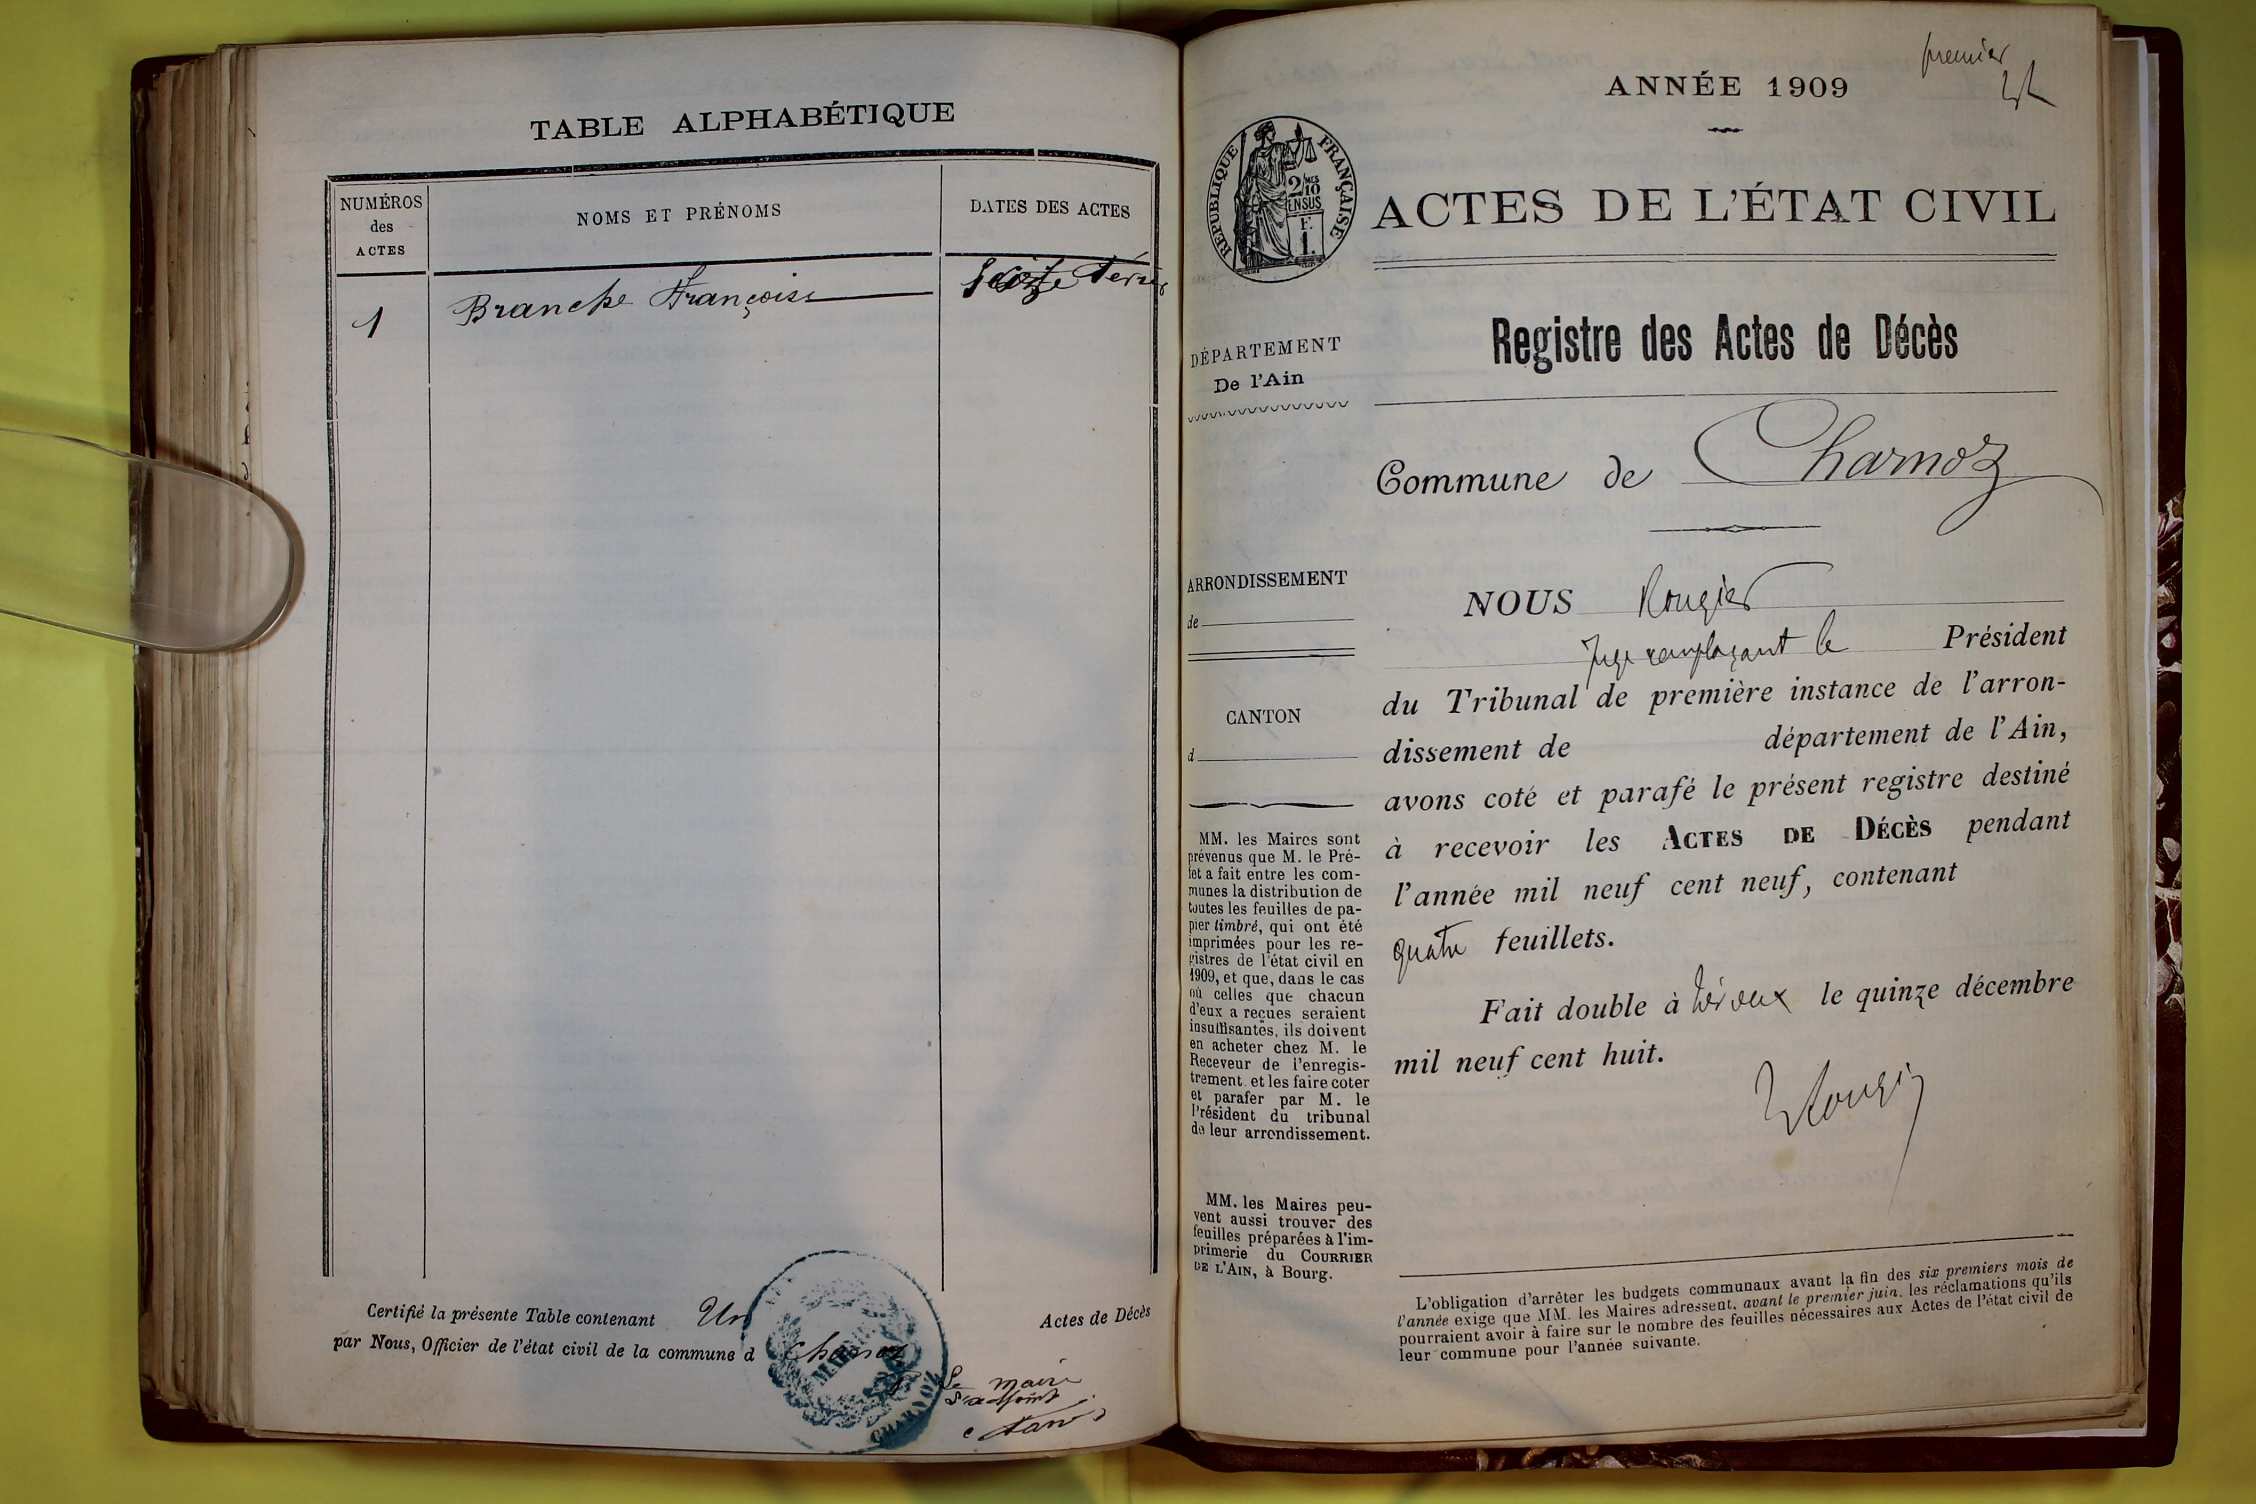 TABLE ALPHABÉTIQUE
NUMÉROS
des
ACTES
NOMS ET PRÉNOMS
DATES DES ACTES
1
Branche François
Certifié la présente Table contenant Un Actes de Décès
par Nous, Officier de l'état civil de la commune d Charnoz
MAIRIE
CHARNOZ
Le maire
premier
ANNÉE 1909
RÉPUBLIQUE FRANÇAISE
2/10
MES
EN SUS
F.
1.
ACTES DE L'ÉTAT CIVIL
Registre des Actes de Décès
DÉPARTEMENT
De l'Ain
Commune de Charnoz
ARRONDISSEMENT
de
CANTON
d
NOUS Rougier
Juge remplaçant le Président
du Tribunal de première instance de l'arron-
dissement de département de l'Ain,
avons coté et parafé le présent registre destiné
à recevoir les ACTES DE DÉCÈS pendant
l'année mil neuf cent neuf, contenant
quatre feuillets.
Fait double à Trévoux le quinze décembre
mil neuf cent huit.
Rougier
MM. les Maires sont
prévenus que M. le Pré-
fet a fait entre les com-
munes la distribution de
toutes les feuilles de pa-
pier timbré, qui ont été
imprimées pour les re-
gistres de l'état civil en
1909, et que, dans le cas
où celles que chacun
d'eux a reçues seraient
insuffisantes, ils doivent
en acheter chez M. le
Receveur de l'enregis-
trement et les faire coter
et parafer par M. le
Président du tribunal
de leur arrondissement.
MM. les Maires peu-
vent aussi trouver des
feuilles préparées à l'im-
primerie du COURRIER
DE L'AIN, à Bourg.
L'obligation d'arrêter les budgets communaux avant la fin des six premiers mois de
l'année exige que MM. les Maires adressent, avant le premier juin, les réclamations qu'ils
pourraient avoir à faire sur le nombre des feuilles nécessaires aux Actes de l'état civil de
leur commune pour l'année suivante.